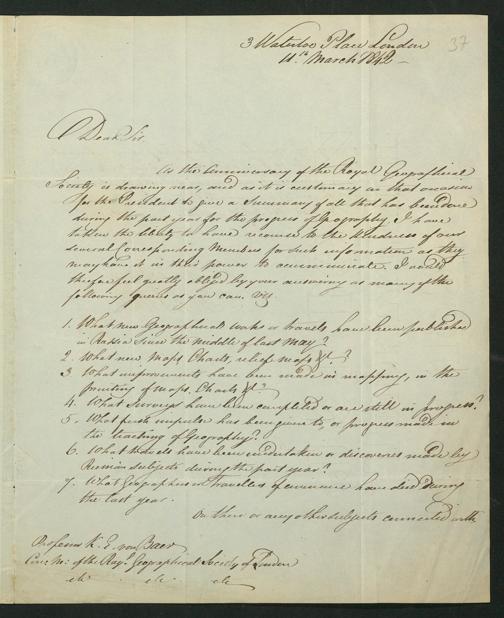 37
3 Waterloo Place London
11th March 1842 –
Dear Sir,
As the Anniversary of the Royal Geographical
Society is drawing near, and as it is customary on that occasion
for the President to give a Summary of all that has been done
during the past year for the progress of Geography, I have
taken the liberty to have recourse to the kindness of our
several Corresponding Members for such information as they
may have it in their power to communicate. I would
therefore feel greatly obliged by your answering as many of the
following queries as you can. viz
1. What new Geographical works or travels have been published
in Russia since the middle of last May?
2. What new Maps Charts, relief maps &c?
3 What improvements have been made in mapping, in the
printing of maps, Charts &c?
4. What Surveys have been completed or are still in progress?
5. What fresh impulse has been given to, or progress made in
the teaching of Geography?
6. What travels have been undertaken or discoveries made by
Russian subjects during the past year?
7. What Geographers or Travellers of eminence have died during
the last year.
On these or any other subjects connected with
Professor K. E. von Baer
Corr. Mr. of the Royl. Geographical Society of London
etc etc etc